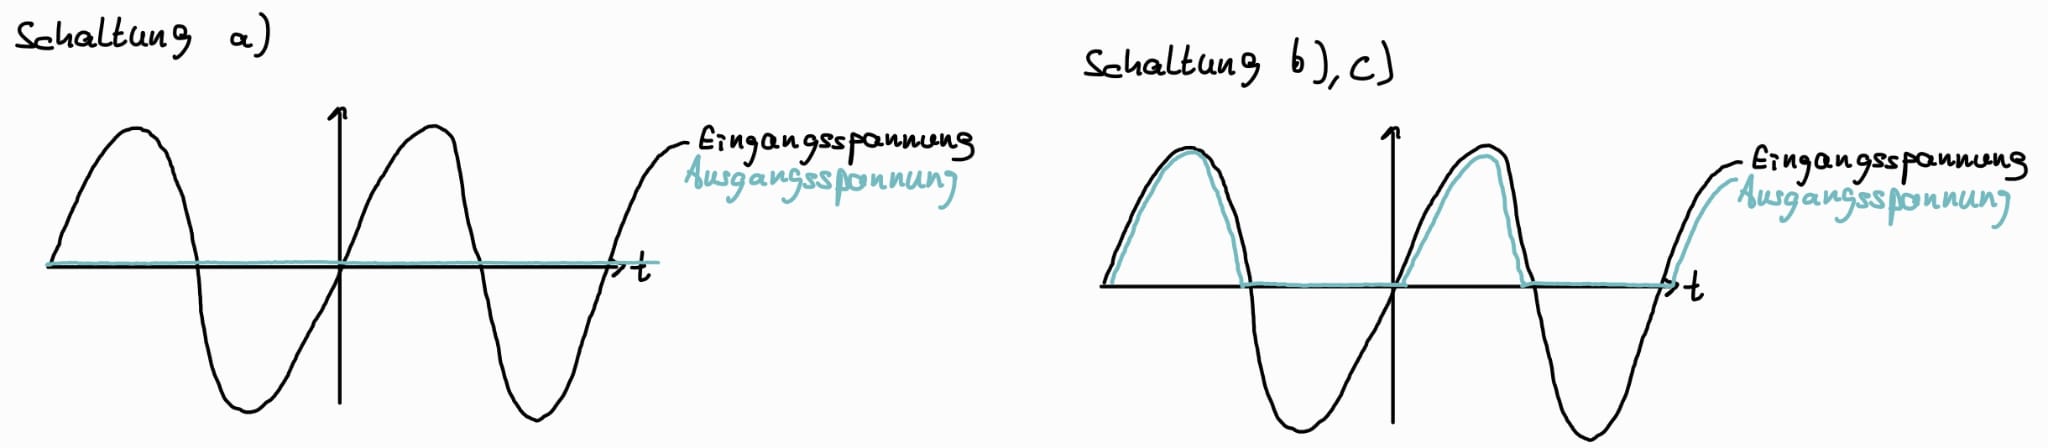 Schaltung a)
Eingangsspannung
Ausgangsspannung
t
Schaltung b), c)
Eingangsspannung
Ausgangsspannung
t